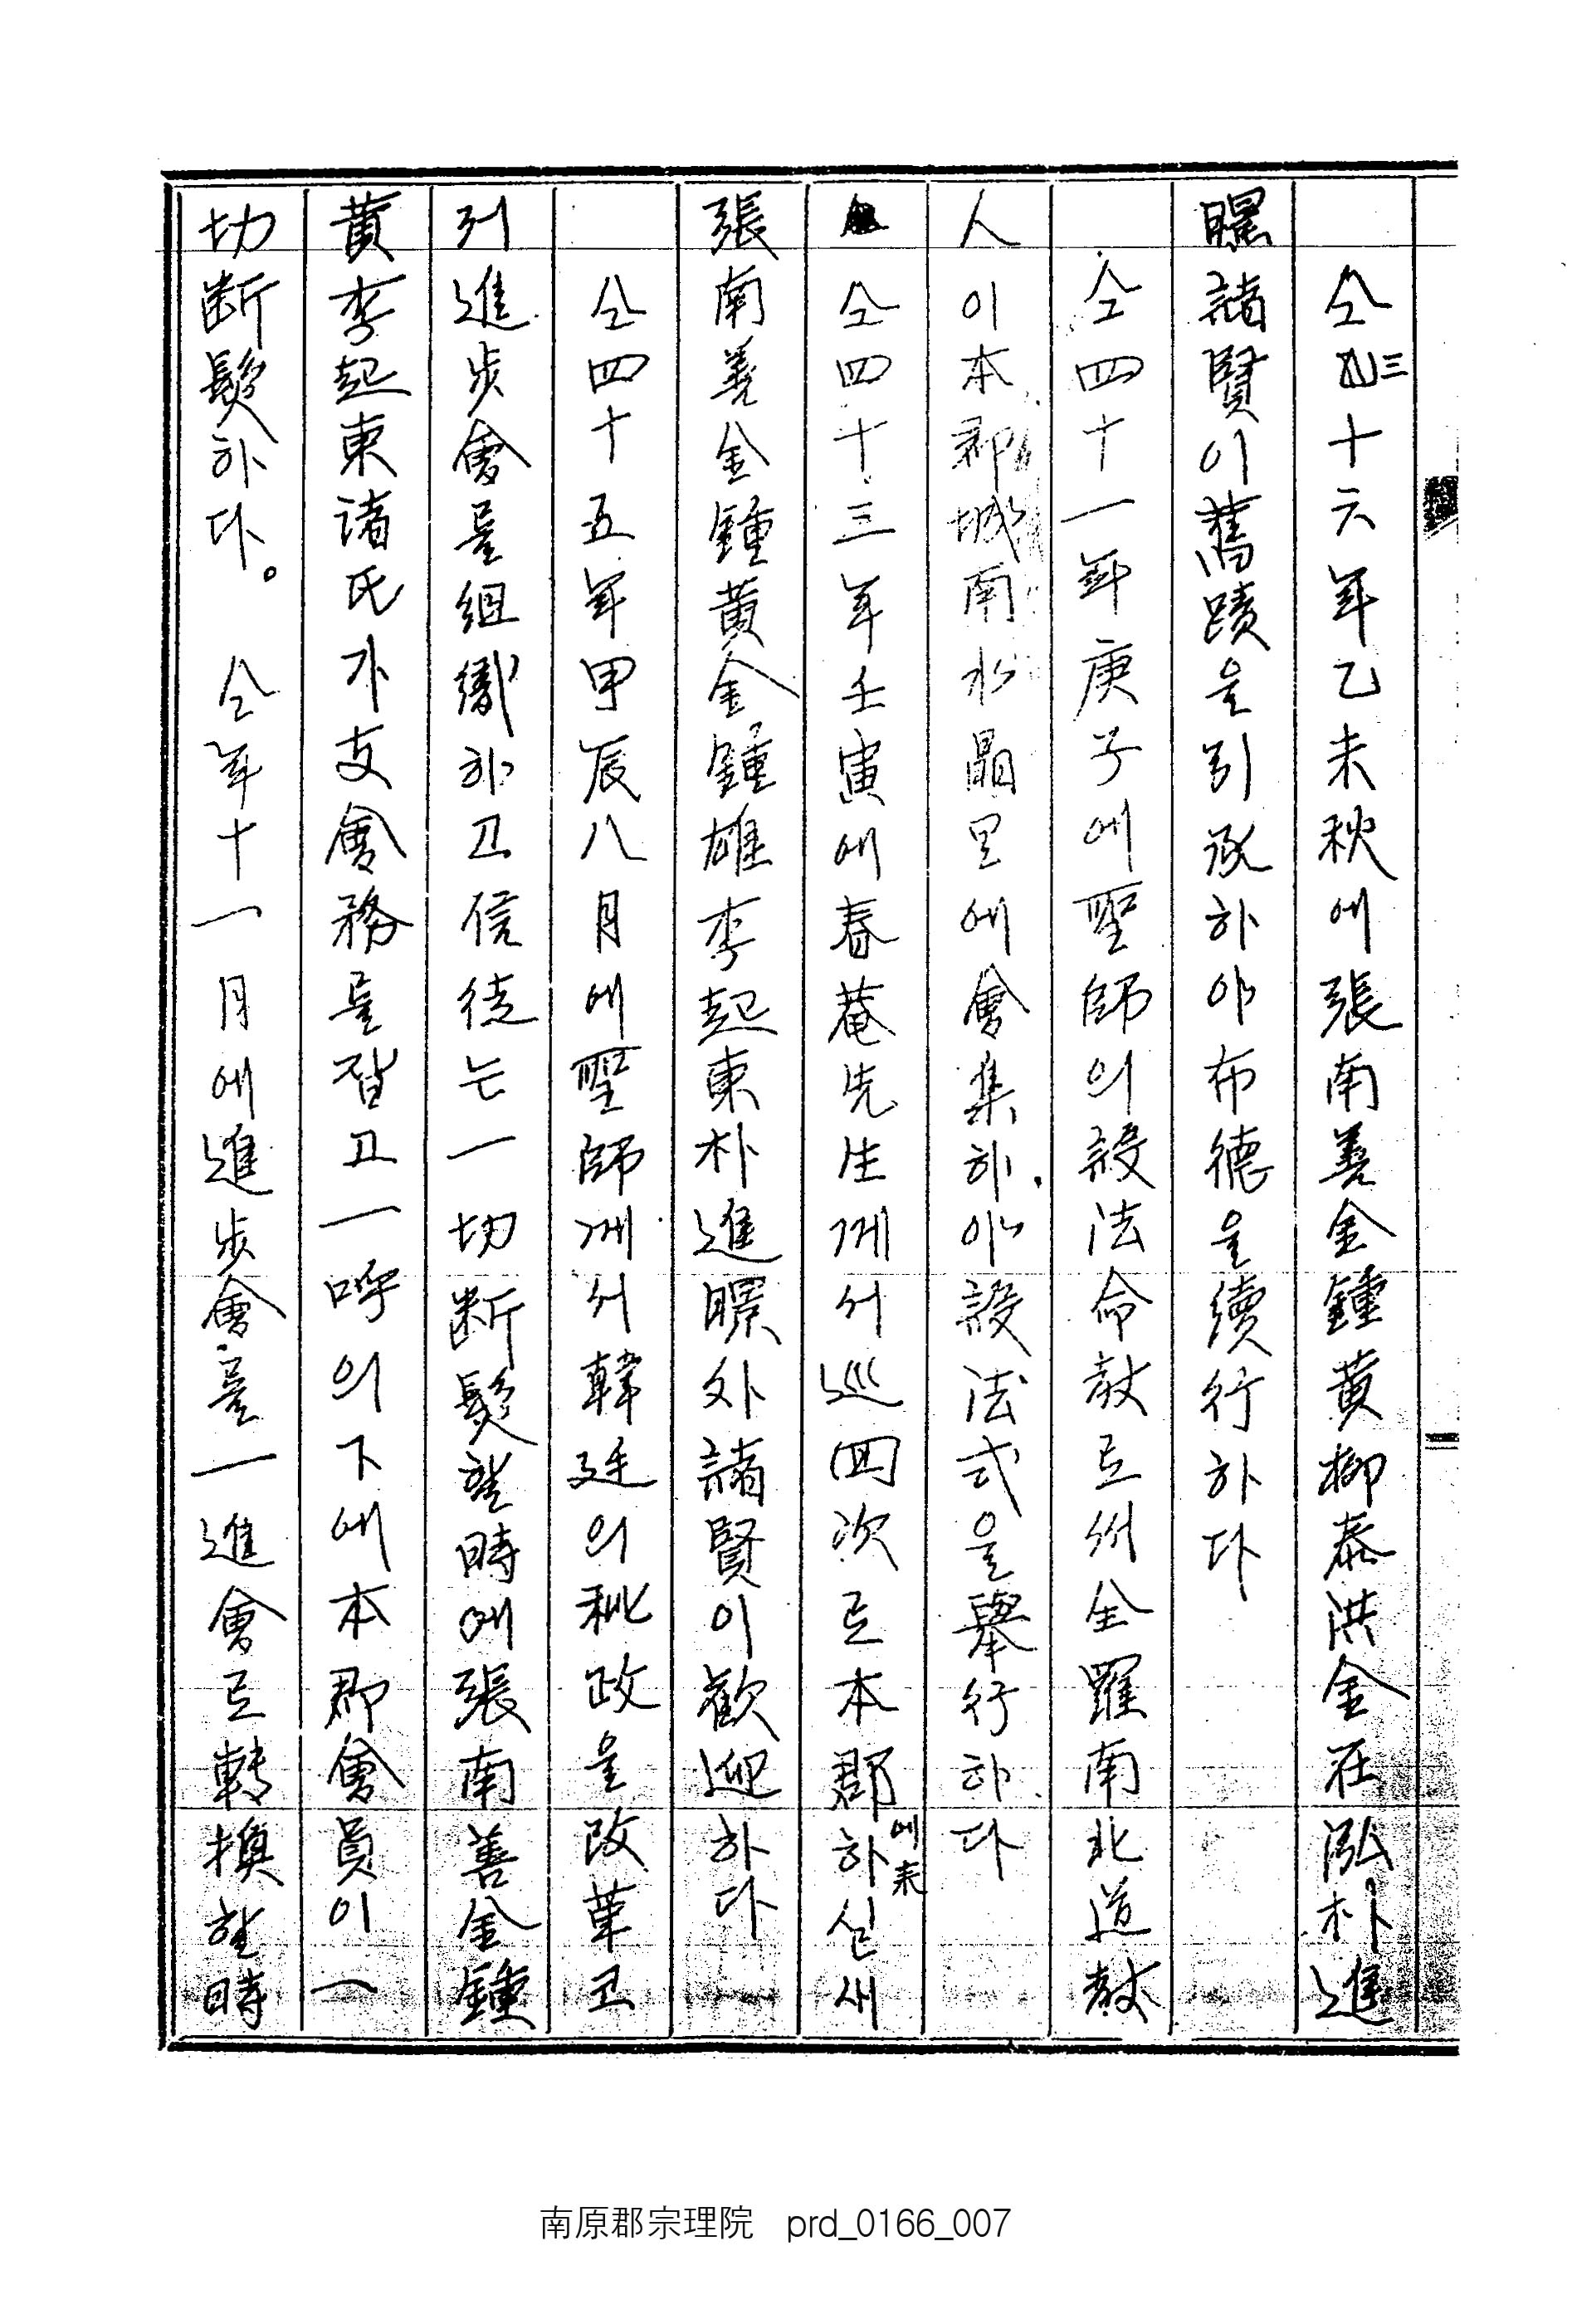 仝三十六年乙未秋에張南善金鍾黃柳泰洪金在泓朴進
㬌諸賢이舊蹟을引承하야布德을續行하다
仝四十一年庚子에聖師의設法命敎로州全羅南北道敎
人이本郡城南水晶里에會集하야設法式을擧行하다
仝四十三年壬寅에春菴先生게서巡四次로本郡에來하실새
張南善金鍾黃金鍾雄李起東朴進㬌外諸賢이歡迎하다
仝四十五年甲辰八月에聖師게서韓廷의秕政을改革코
저進步會를組織하고信徒는一切斷髮할時에張南善金鍾
黃李起東諸氏가支會務를잡고一呼의下에本郡會員이一
切斷髮하다。 仝年十一月에進步會를一進會로轉換할時
南原郡宗理院 prd_0166_007